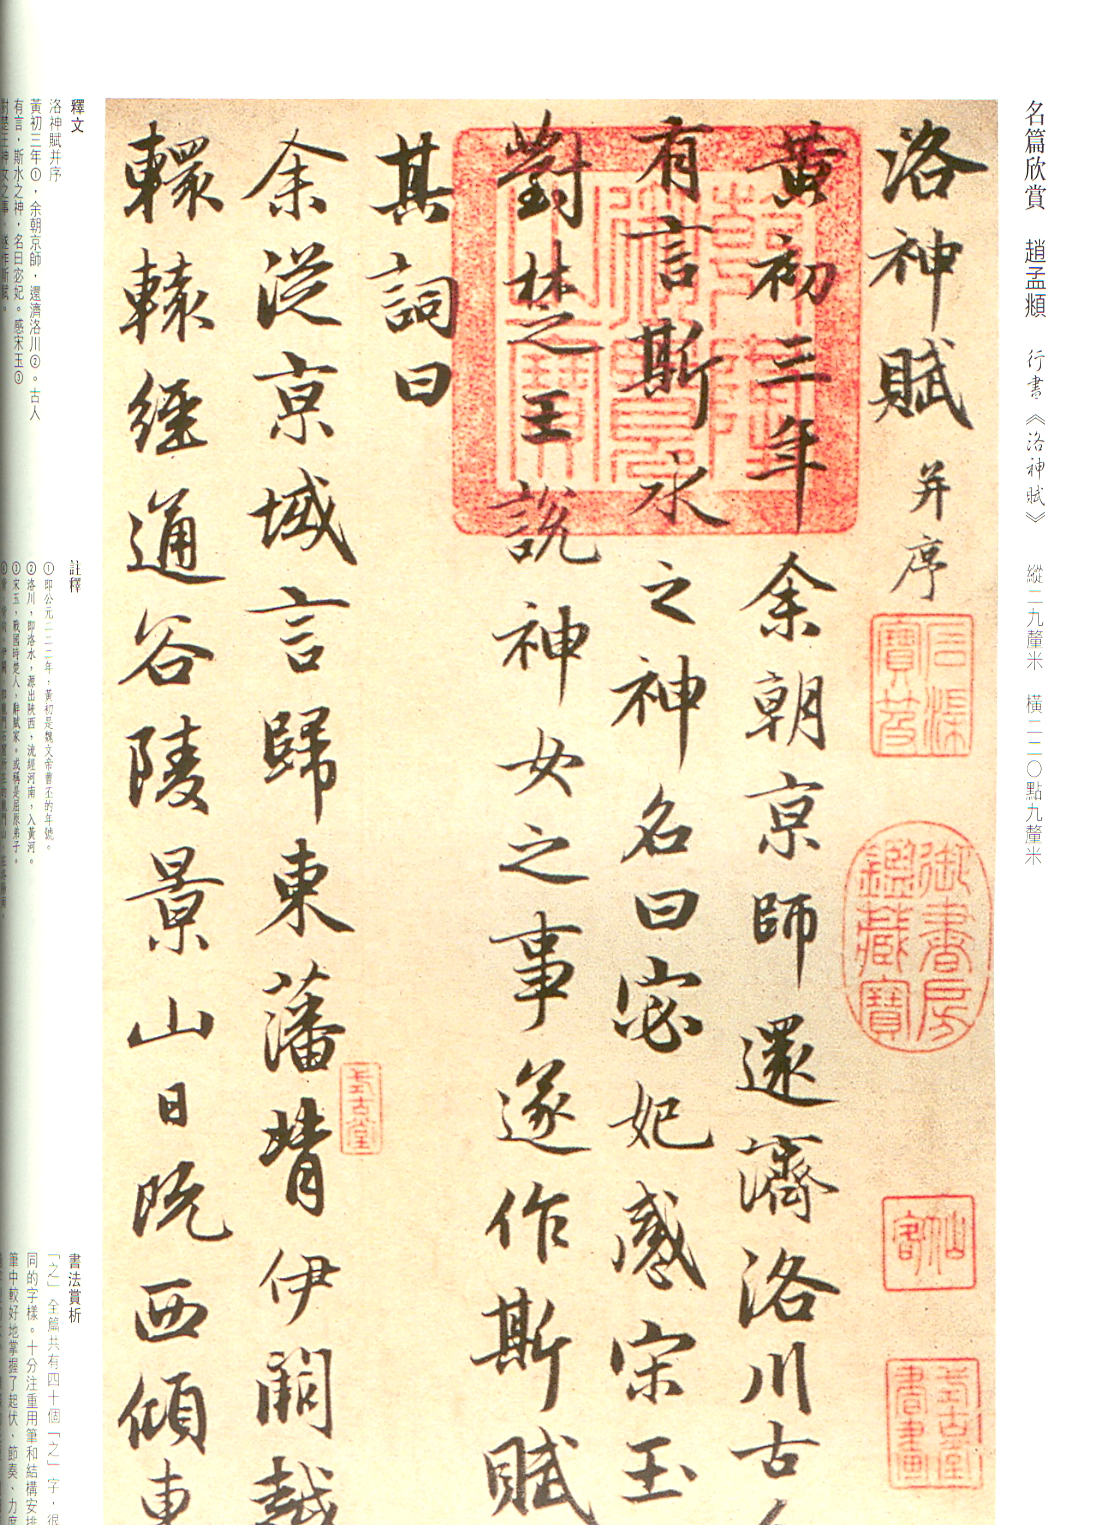 名篇欣賞 趙孟頫 行書《洛神賦》 縱二九釐米 橫二二〇點九釐米
洛神賦并序
石渠寶笈
御書房鑑藏寶
式古堂書畫
黃初三年余朝京師還濟洛川古人
有言斯水之神名曰宓妃感宋玉
對楚王說神女之事遂作斯賦
其詞曰
式古堂
余從京域言歸東藩背伊闕越
轘轅經通谷陵景山日既西傾車
釋文
洛神賦并序
黃初三年①,余朝京師,還濟洛川②。古人
有言,斯水之神,名曰宓妃。感宋玉③
對楚王神女之事。遂作斯賦。
註釋
①即公元二二二年,黃初是魏文帝曹丕的年號。
②洛川,即洛水,源出陝西,流經河南,入黃河。
③宋玉,戰國時楚人,辭賦家。或稱是屈原弟子。
書法賞析
「之」全篇共有四十個「之」字,很
同的字樣。十分注重用筆和結構安排
筆中較好地掌握了起伏、節奏、力度